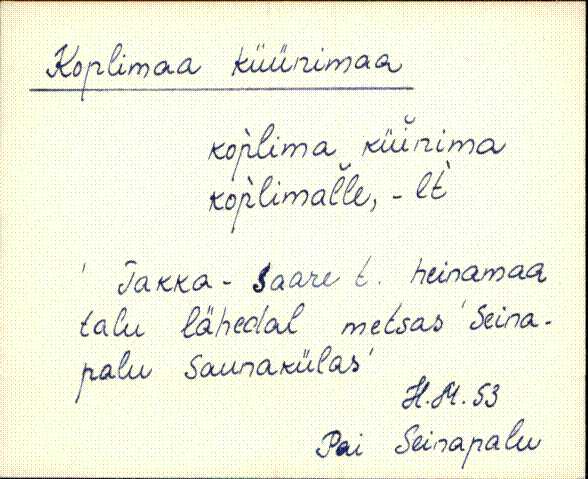 Koplimaa küünimaa
kop̀lima küǐnima
kop̀limaľle, - lt̀
' Takka - Saare t. heinamaa
talu lähedal metsas Seina-
palu Saunakülas'
H.M. 53
Pai Seinapalu